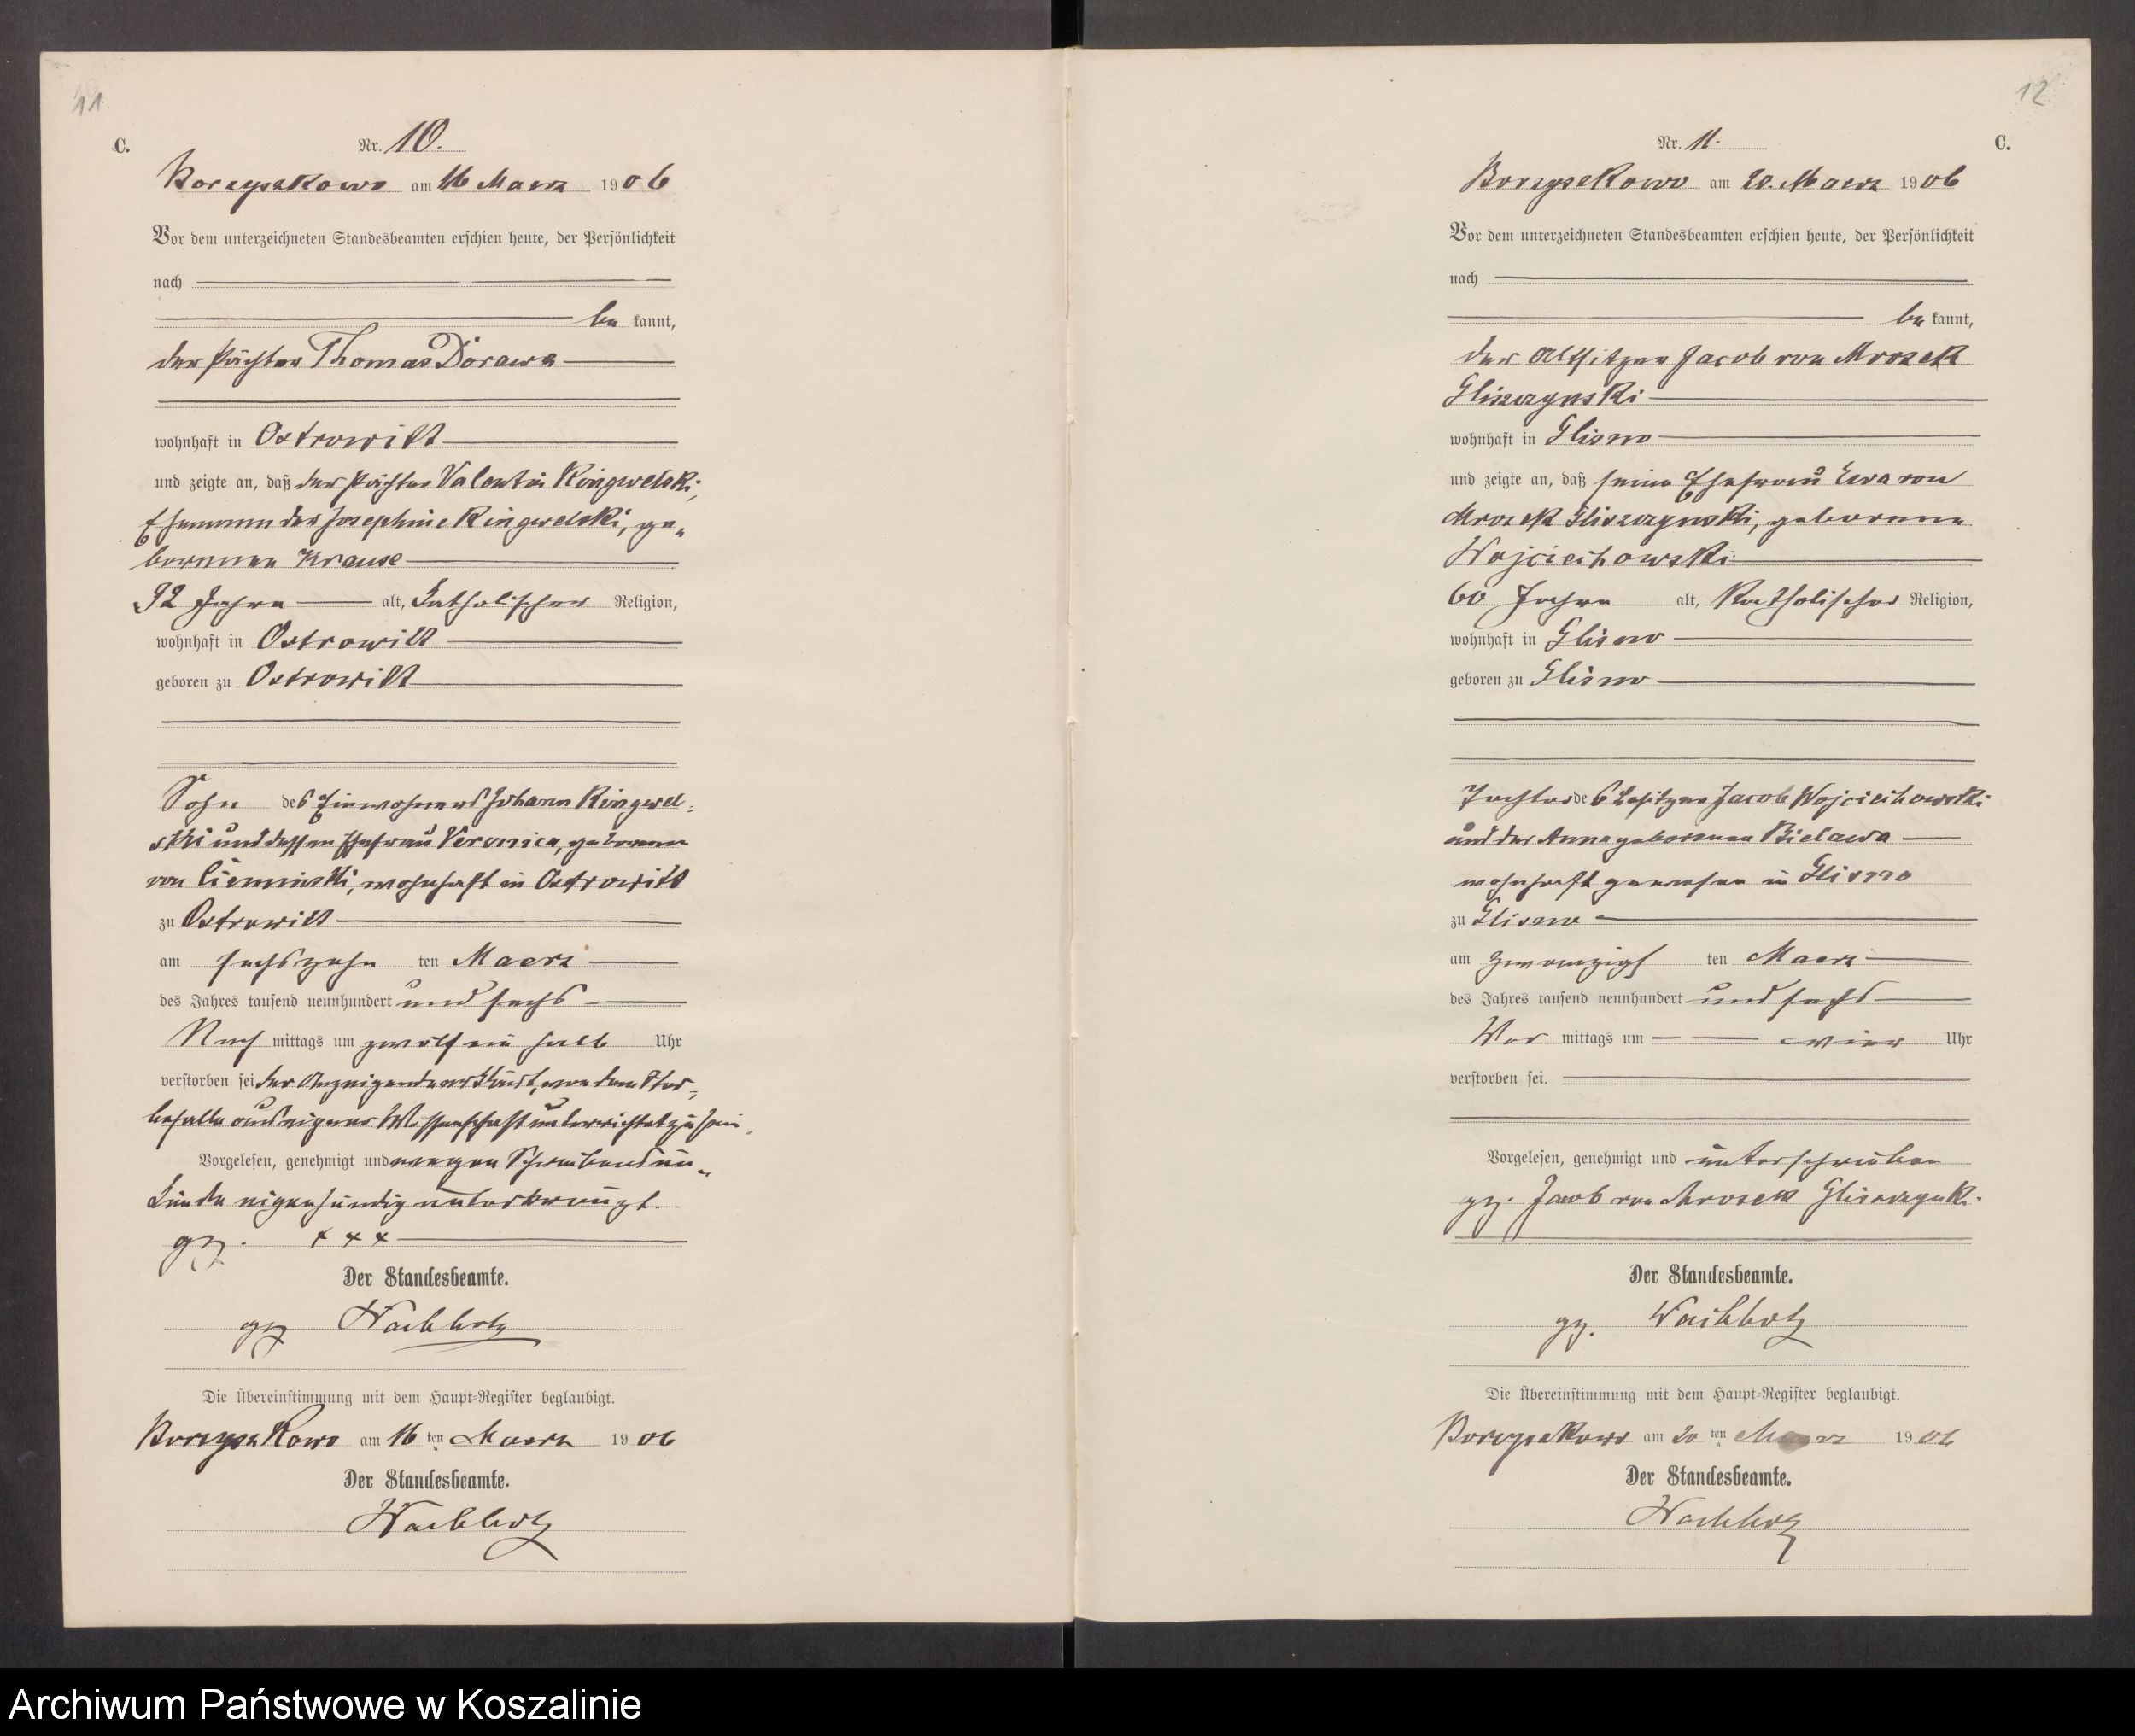 11
C.
Nr. 10.
Borzyszkowo am 16 Maerz 1906
Vor dem unterzeichneten Standesbeamten erschien heute, der Persönlichkeit
nach
be kannt,
der Pächter Thomas Dorawa
wohnhaft in Ostrowitt
und zeigte an, daß der Pächter Valentin Ringwelski,
Ehemann der Josephine Ringwelski, ge„
borenen Krause
92 Jahre alt, katholischer Religion,
wohnhaft in Ostrowitt
geboren zu Ostrowitt
Sohn des Einwohners Johann Ringwel-
ski und dessen Ehefrau Veronica, geborenen
von Ciemninski, wohnhaft in Ostrowitt
zu Ostrowitt
am sechszehn ten Maerz
des Jahres tausend neunhundert und sechs
Nach mittags um zwölf ein halb Uhr
verstorben sei der Anzeigende erklärt, von dem Ster-
befalle aus eigener Wissenschaft unterrichtet zu sein.
Vorgelesen, genehmigt und wegen Schreibens un„
kunde eigenhändig unterkreuzt.
gez. + + +
Der Standesbeamte.
gez Wachholz
Die Übereinstimmung mit dem Haupt-Register beglaubigt.
Borzyszkowo am 16 ten Maerz 1906
Der Standesbeamte.
Wachholz
12
C.
Nr. 11.
Borzyszkowo am 20. Maerz 1906
Vor dem unterzeichneten Standesbeamten erschien heute, der Persönlichkeit
nach
be kannt,
der Altsitzer Jacob von Mrozek
Gliszczynski
wohnhaft in Glisno
und zeigte an, daß seine Ehefrau Eva von
Mrozek Gliszczynski, geborene
Wojciechowski
60 Jahre alt, Katholischer Religion,
wohnhaft in Glisno
geboren zu Glisno
Tochter des Besitzers Jacob Wojciechowski
und der Anna geborenen Bielawa
wohnhaft gewesen in Glisno
zu Glisno
am zwanzigs ten Maerz
des Jahres tausend neunhundert und sechs
Vor mittags um vier Uhr
verstorben sei.
Vorgelesen, genehmigt und unterschrieben
gez. Jacob von Mrosek Gliszczynki.
Der Standesbeamte.
gez. Wachholz
Die Übereinstimmung mit dem Haupt-Register beglaubigt.
Borzyszkowo am 20 ten Maerz 1906
Der Standesbeamte.
Wachholz
Archiwum Państwowe w Koszalinie